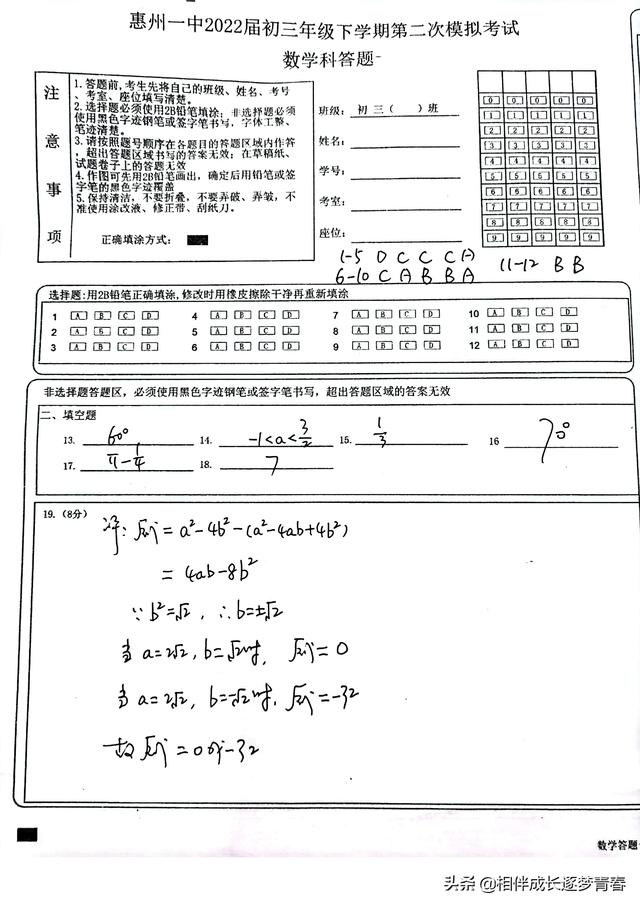 惠州一中2022届初三年级下学期第二次模拟考试
数学科答题-
注意事项
1.答题前,考生先将自己的班级、姓名、考号
、考室、座位填写清楚。
2.选择题必须使用2B铅笔填涂;非选择题必须
使用黑色字迹钢笔或签字笔书写,字体工整、
笔迹清楚。
3.请按照题号顺序在各题目的答题区域内作答
,超出答题区域书写的答案无效;在草稿纸、
试题卷子上的答题无效
4.作图可先用2B铅笔画出,确定后用铅笔或签
字笔的黑色字迹覆盖
5.保持清洁,不要折叠,不要弄破、弄皱,不
准使用涂改液、修正带、刮纸刀。
正确填涂方式:
班级: 初 三 ( ) 班
姓名:
学号:
考室:
座位:
0 0 0 0 0
1 1 1 1 1
2 2 2 2 2
3 3 3 3 3
4 4 4 4 4
5 5 5 5 5
6 6 6 6 6
7 7 7 7 7
8 8 8 8 8
9 9 9 9 9
1-5 D C C C A
6-10 C A B B A
11-12 B B
选择题:用2B铅笔正确填涂,修改时用橡皮擦除干净再重新填涂
1 A B C D 4 A B C D 7 A B C D 10 A B C D
2 A B C D 5 A B C D 8 A B C D 11 A B C D
3 A B C D 6 A B C D 9 A B C D 12 A B C D
非选择题答题区,必须使用黑色字迹钢笔或签字笔书写,超出答题区域的答案无效
二、填空题
13. 60° 14. -1<a<3/2 15. 1/3 16 70°
17. π-1/4 18. 7
19. (8分)
解: 原式=a²-4b²-(a²-4ab+4b²)
=4ab-8b²
∵b²=√2, ∴b=±√2
当a=2√2, b=√2时, 原式=0
当a=2√2, b=-√2时, 原式=-32
故原式=0或-32
数学答题
头条 @相伴成长逐梦青春